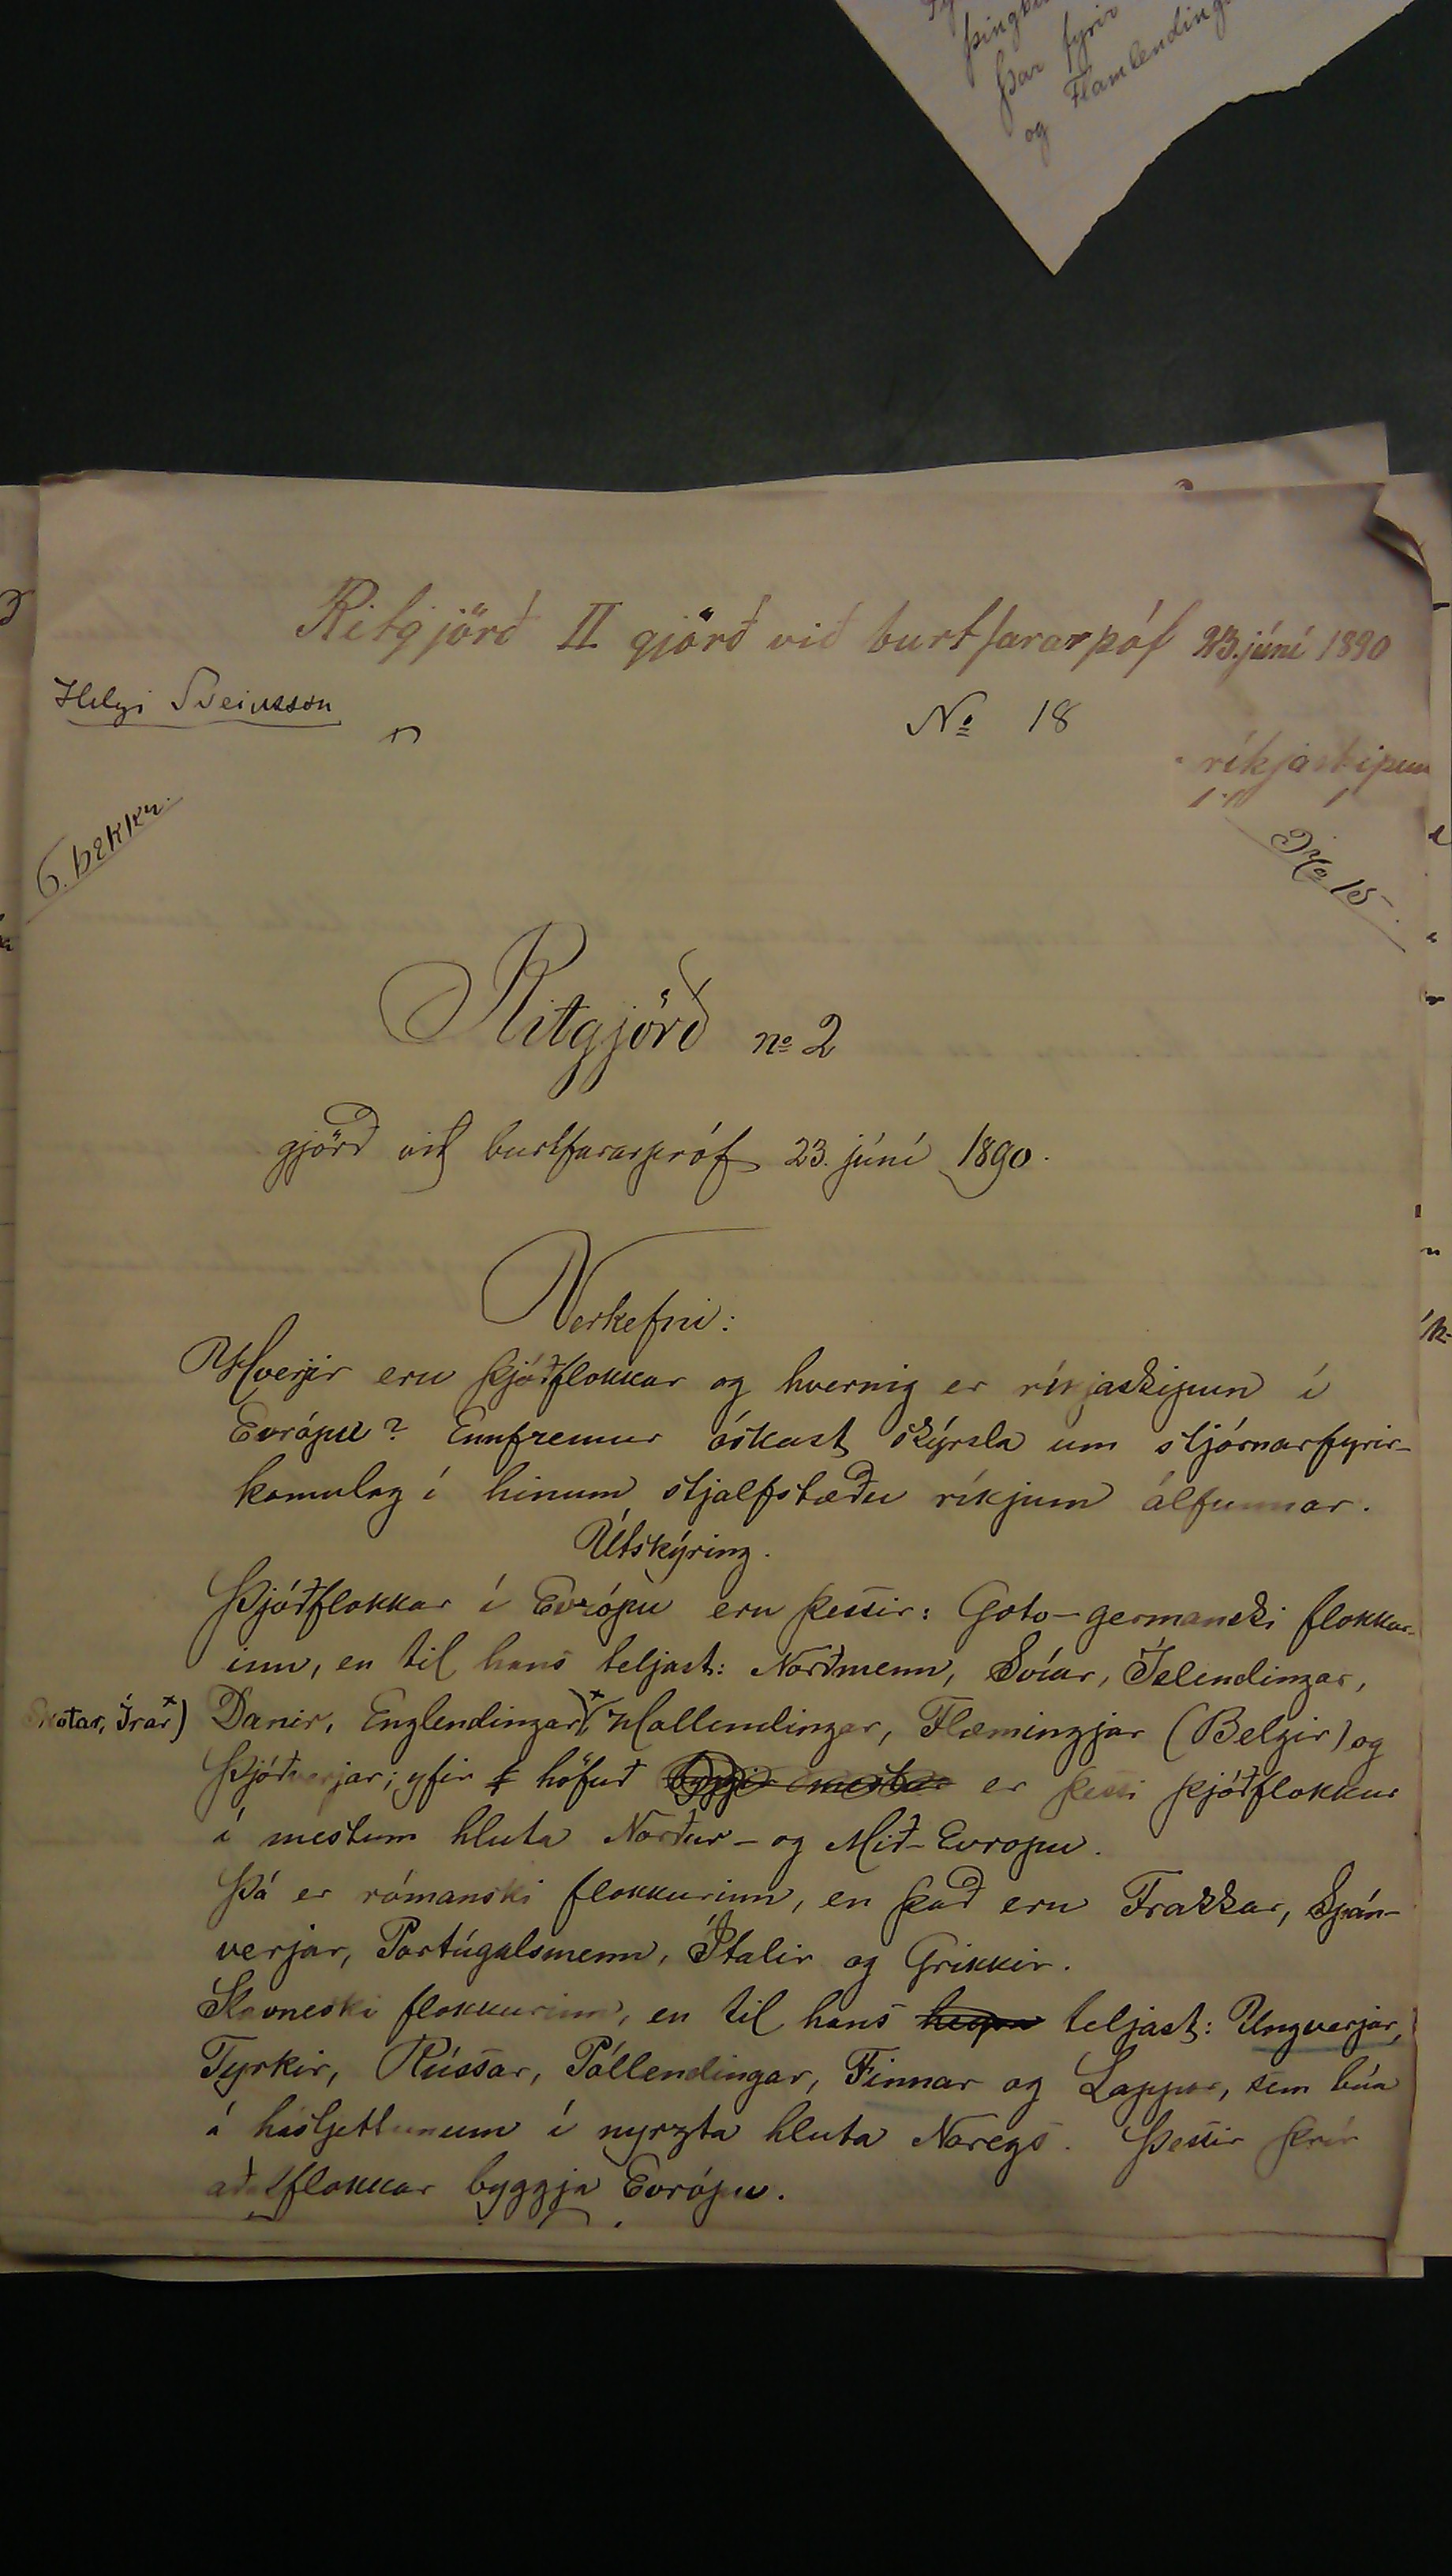 þar fyrir
og Flamlending
Ritgjörð II gjörð við burtfararpóf 23. júní 1890
Helgi Sveinsson
No 18
ríkjaskipun
6. bekkr.
No 15
Ritgjörð no 2
gjörð við burtfararpróf 23. júní 1890.
Verkefni:
Hverjir eru þjóðflokkar og hvernig er ríkjaskipun í
Evrópu? Ennfremur óskast skýrsla um stjórnarfyrir-
komulag í hinum sjalfstæðu ríkjum álfunnar.
Útskýring.
Þjóðflokkar í Evrópu eru þessir: Goto-germanski flokkur-
inn, en til hans teljast: Norðmenn, Svíar, Íslendingar,
Skotar, Írar x) Danir, Englendingar, x) Hollendingar, Flæmingjar (Belgir) og
Þjóðverjar; yfir höfuð byggir mestan er þessi þjóðflokkur
í mestum hluta Norður- og Mið-Evropu.
Þá er rómanski flokkurinn, en það eru Frakkar, Spán-
verjar, Portúgalsmenn, Ítalir og Grikkir.
Slavneski flokkurinn, en til hans teljast: Ungverjar,
Tyrkir, Rússar, Póllendingar, Finnar og Lappar, sem búa
á hásljettunum í nyrzta hluta Noregs. Þessir þrír
aðalflokkar byggja Evrópu.